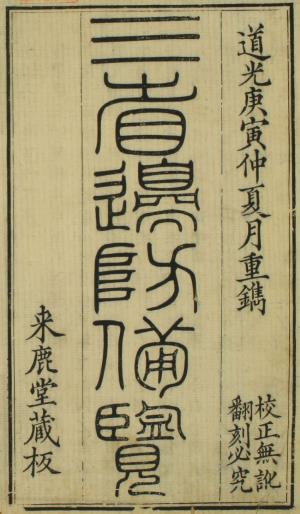 道光庚寅仲夏月重鐫
校正無訛
翻刻必究
三省邊防備覽
来鹿堂藏板